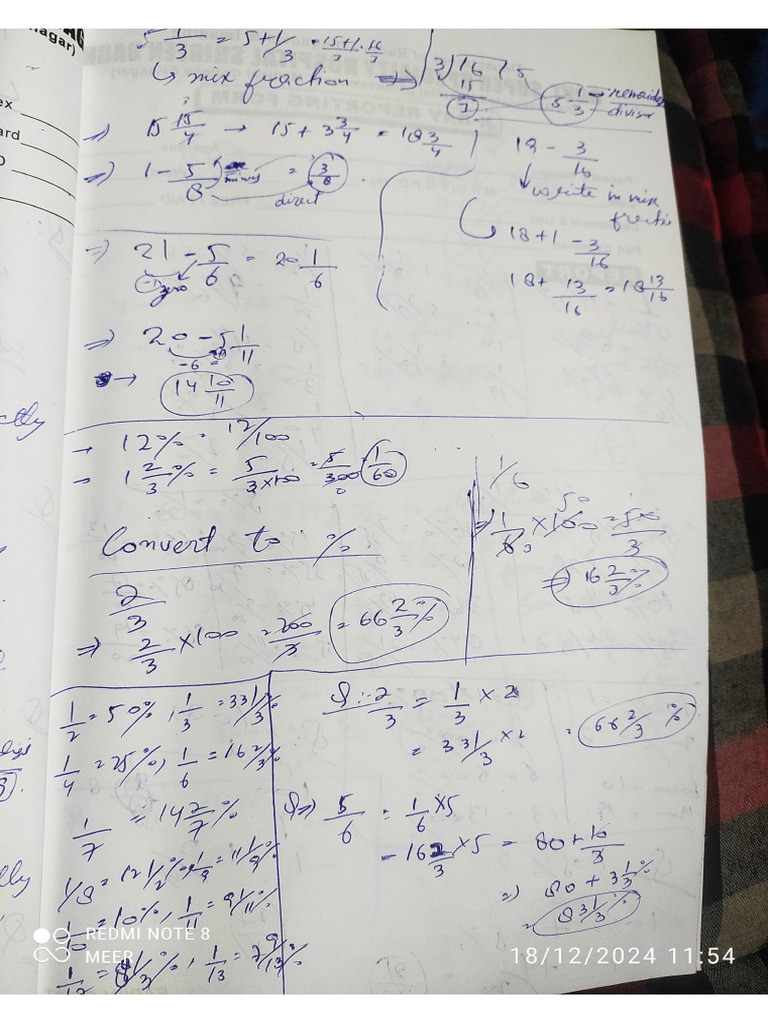 5 1/3 = 5+1/3 = 15+1/3 = 16/3
↳ mix fraction ⇒
3)16(5
15
1
5 1/3 → remainder
divisor
⇒ 15 15/4 → 15 + 3 3/4 = 18 3/4
⇒ 1 - 5/8 = 3/8
minus
direct
19 - 3/16
↓ write in mix
fractio
18+1 - 3/16
18 + 13/16 = 18 13/16
⇒ 21 - 5/6 = 20 1/6
⇒ 20 - 5 1/11
-6
→ 14 10/11
→ 12% = 12/100
- 1 2/3 % = 5/3×100 = 5/300 = 1/60
Convert to %.
2/3
⇒ 2/3 ×100 = 200/3 = 66 2/3 %
1/6
⇒ 1/6 × 100 = 50/3
50
3
⇒ 16 2/3 %
1/2 = 50%, 1/3 = 33 1/3 %
1/4 = 25%, 1/6 = 16 2/3 %
1/7 = 14 2/7 %
1/8 = 12 1/2 %, 1/9 = 11 1/9 %
1/10 = 10%, 1/11 = 9 1/11 %
1/12 = 8 1/3 %, 1/13 = 7 9/13 %
Q:- 2/3 = 1/3 × 2
= 33 1/3 × 2 = 66 2/3 %
Q⇒ 5/6 = 1/6 × 5
= 16 2/3 × 5 = 80 + 10/3
⇒ 80 + 3 1/3 %
= 83 1/3 %
nagar)
REDMI NOTE 8
MEER
18/12/2024 11:54